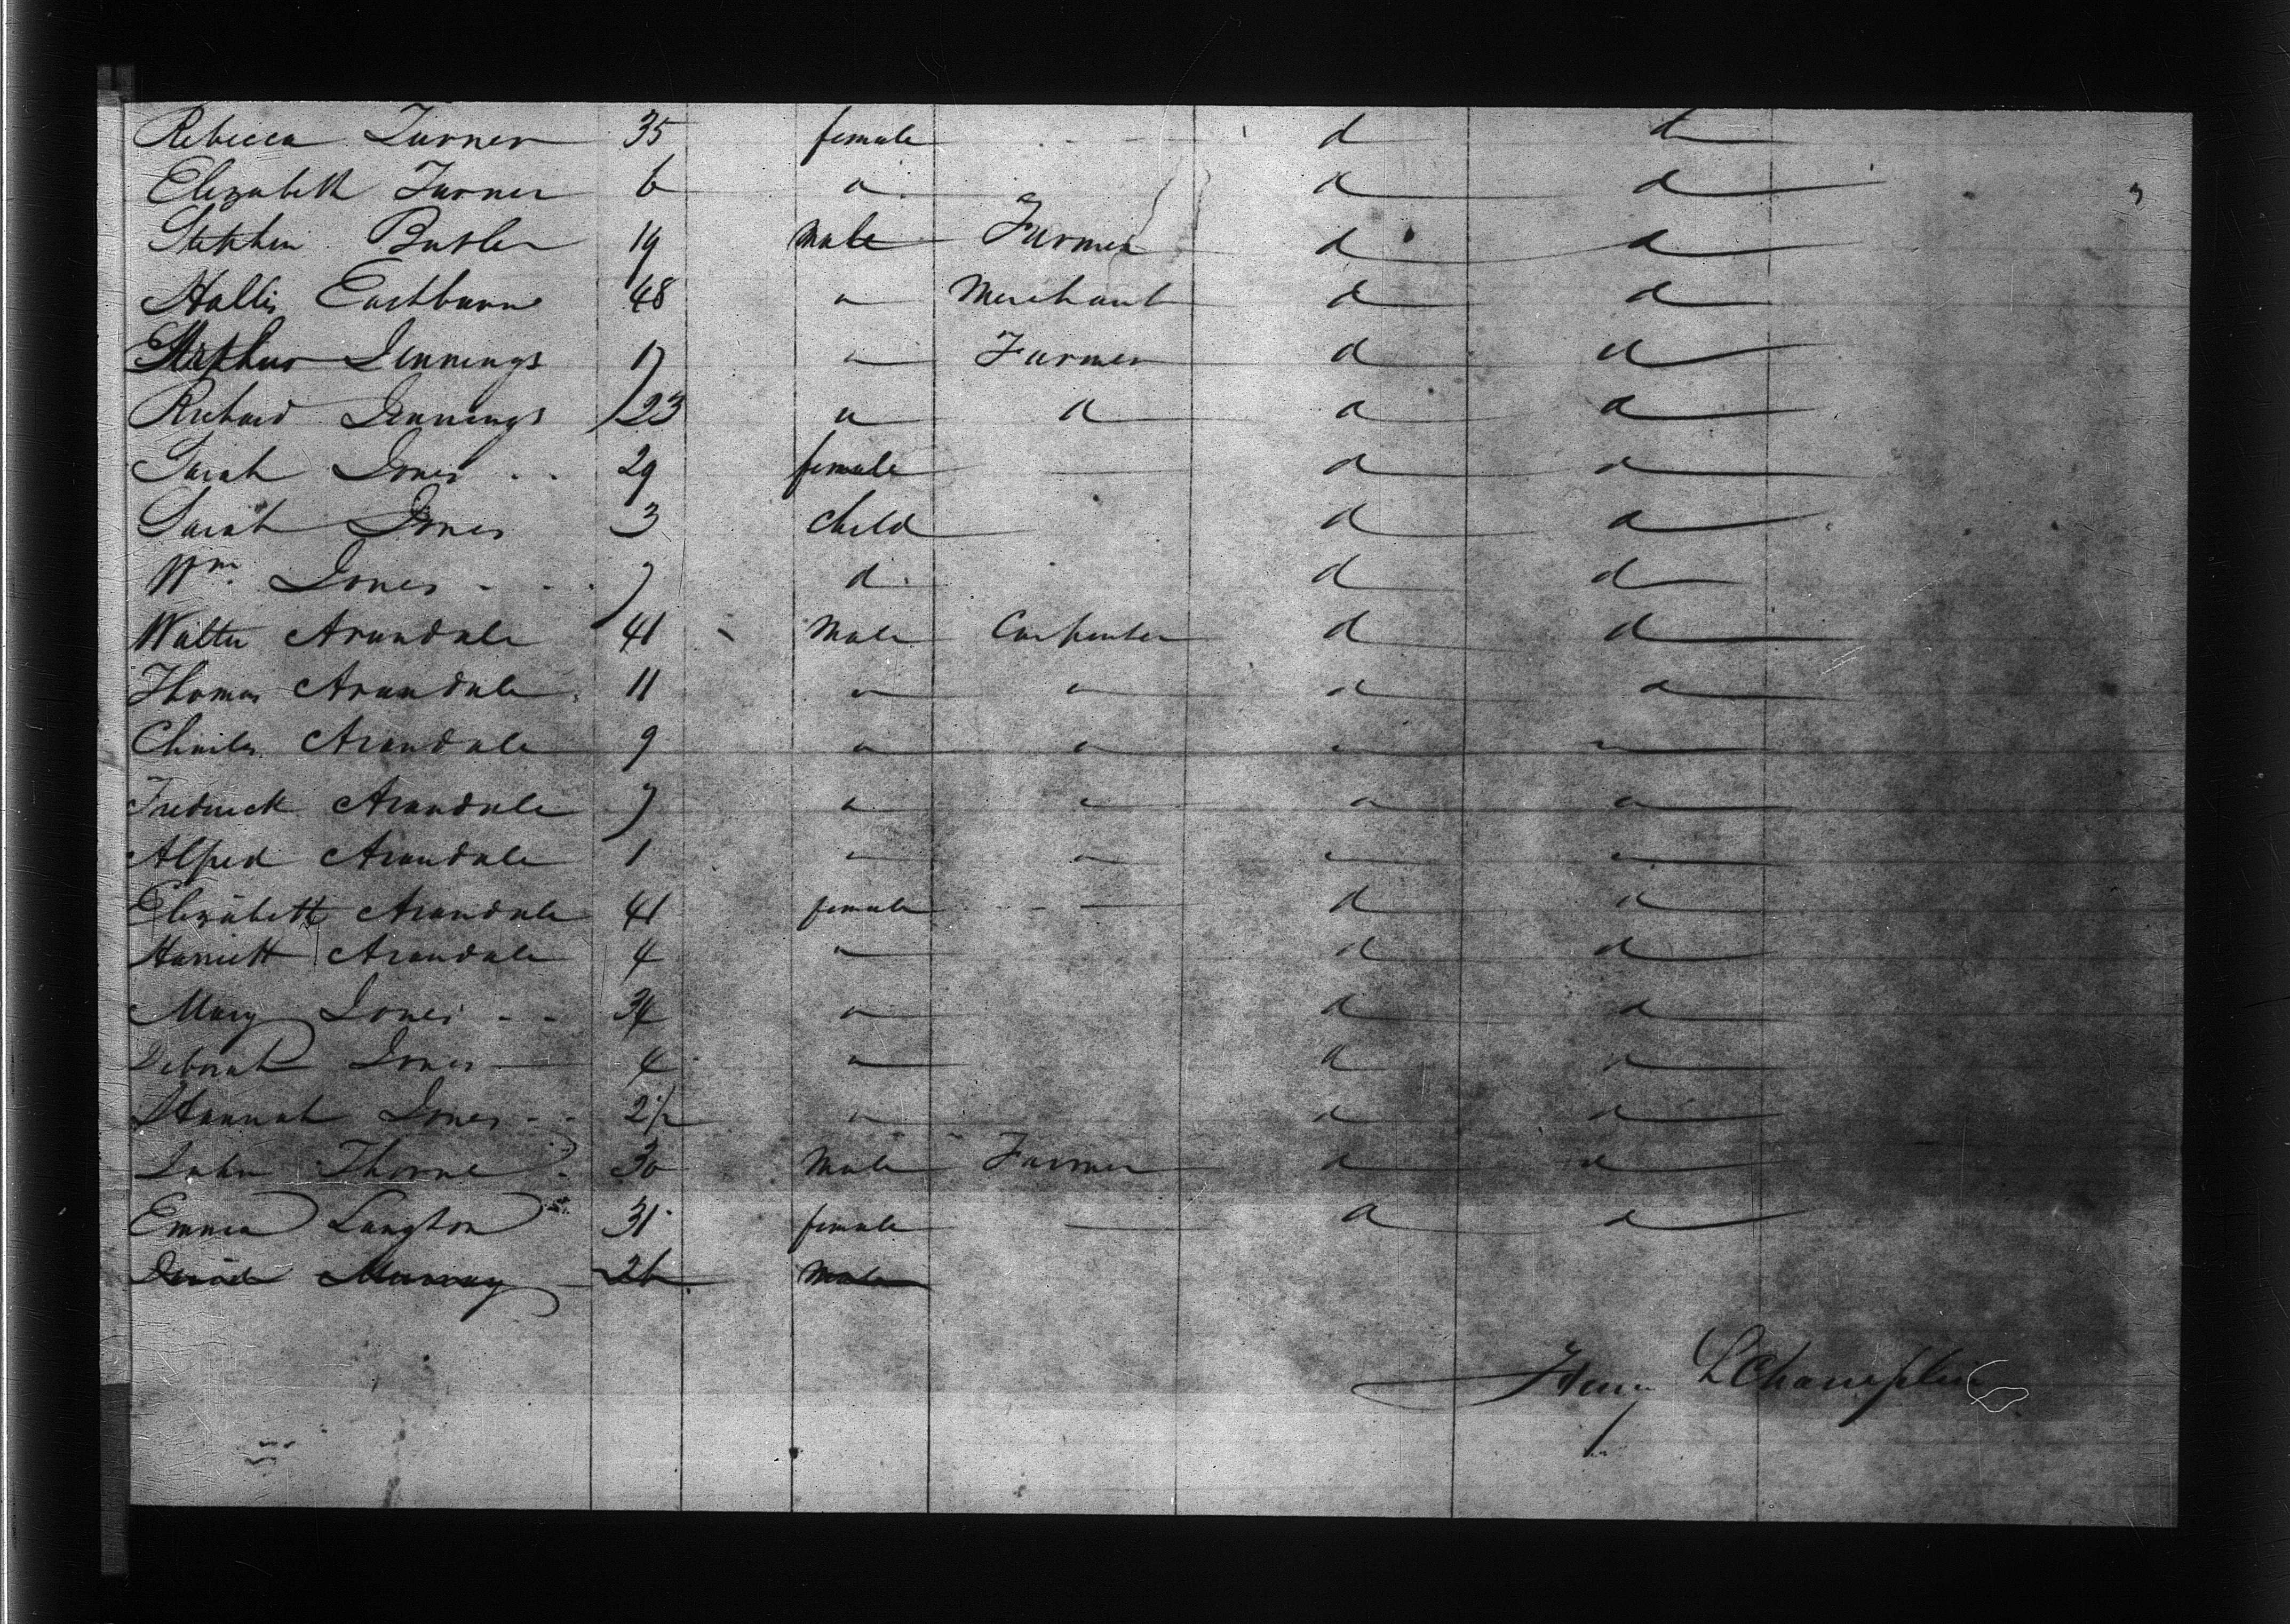 Rebecca Turner 35 female d d
Elizabeth Turner 6 a d d
Stephen Butler 19 Male Farmer d d
Hollis Eastburn 48 a Merchant d d
Stephen Jennings 17 a Farmer d d
Richard Jennings 23 a a d d
Sarah Jones 29 female d d
Sarah Jones 3 child d d
Wm Jones 7 d d d
Walter Arundale 41 Male Carpenter d d
Thomas Arundale 11 a a d d
Charles Arundale 9 a a a a
Frederick Arundale 7 a a a a
Alfred Arundale 1 a a a a
Elizabeth Arundale 41 female d d
Harriett Arundale 4 a d d
Mary Jones 34 a d d
Deborah Jones 4 a d d
Hannah Jones 2½ a d d
John Thorne 30 Male Farmer d d
Emma Langton 31 female d d
Murray 26 Male
Henry L Champlin